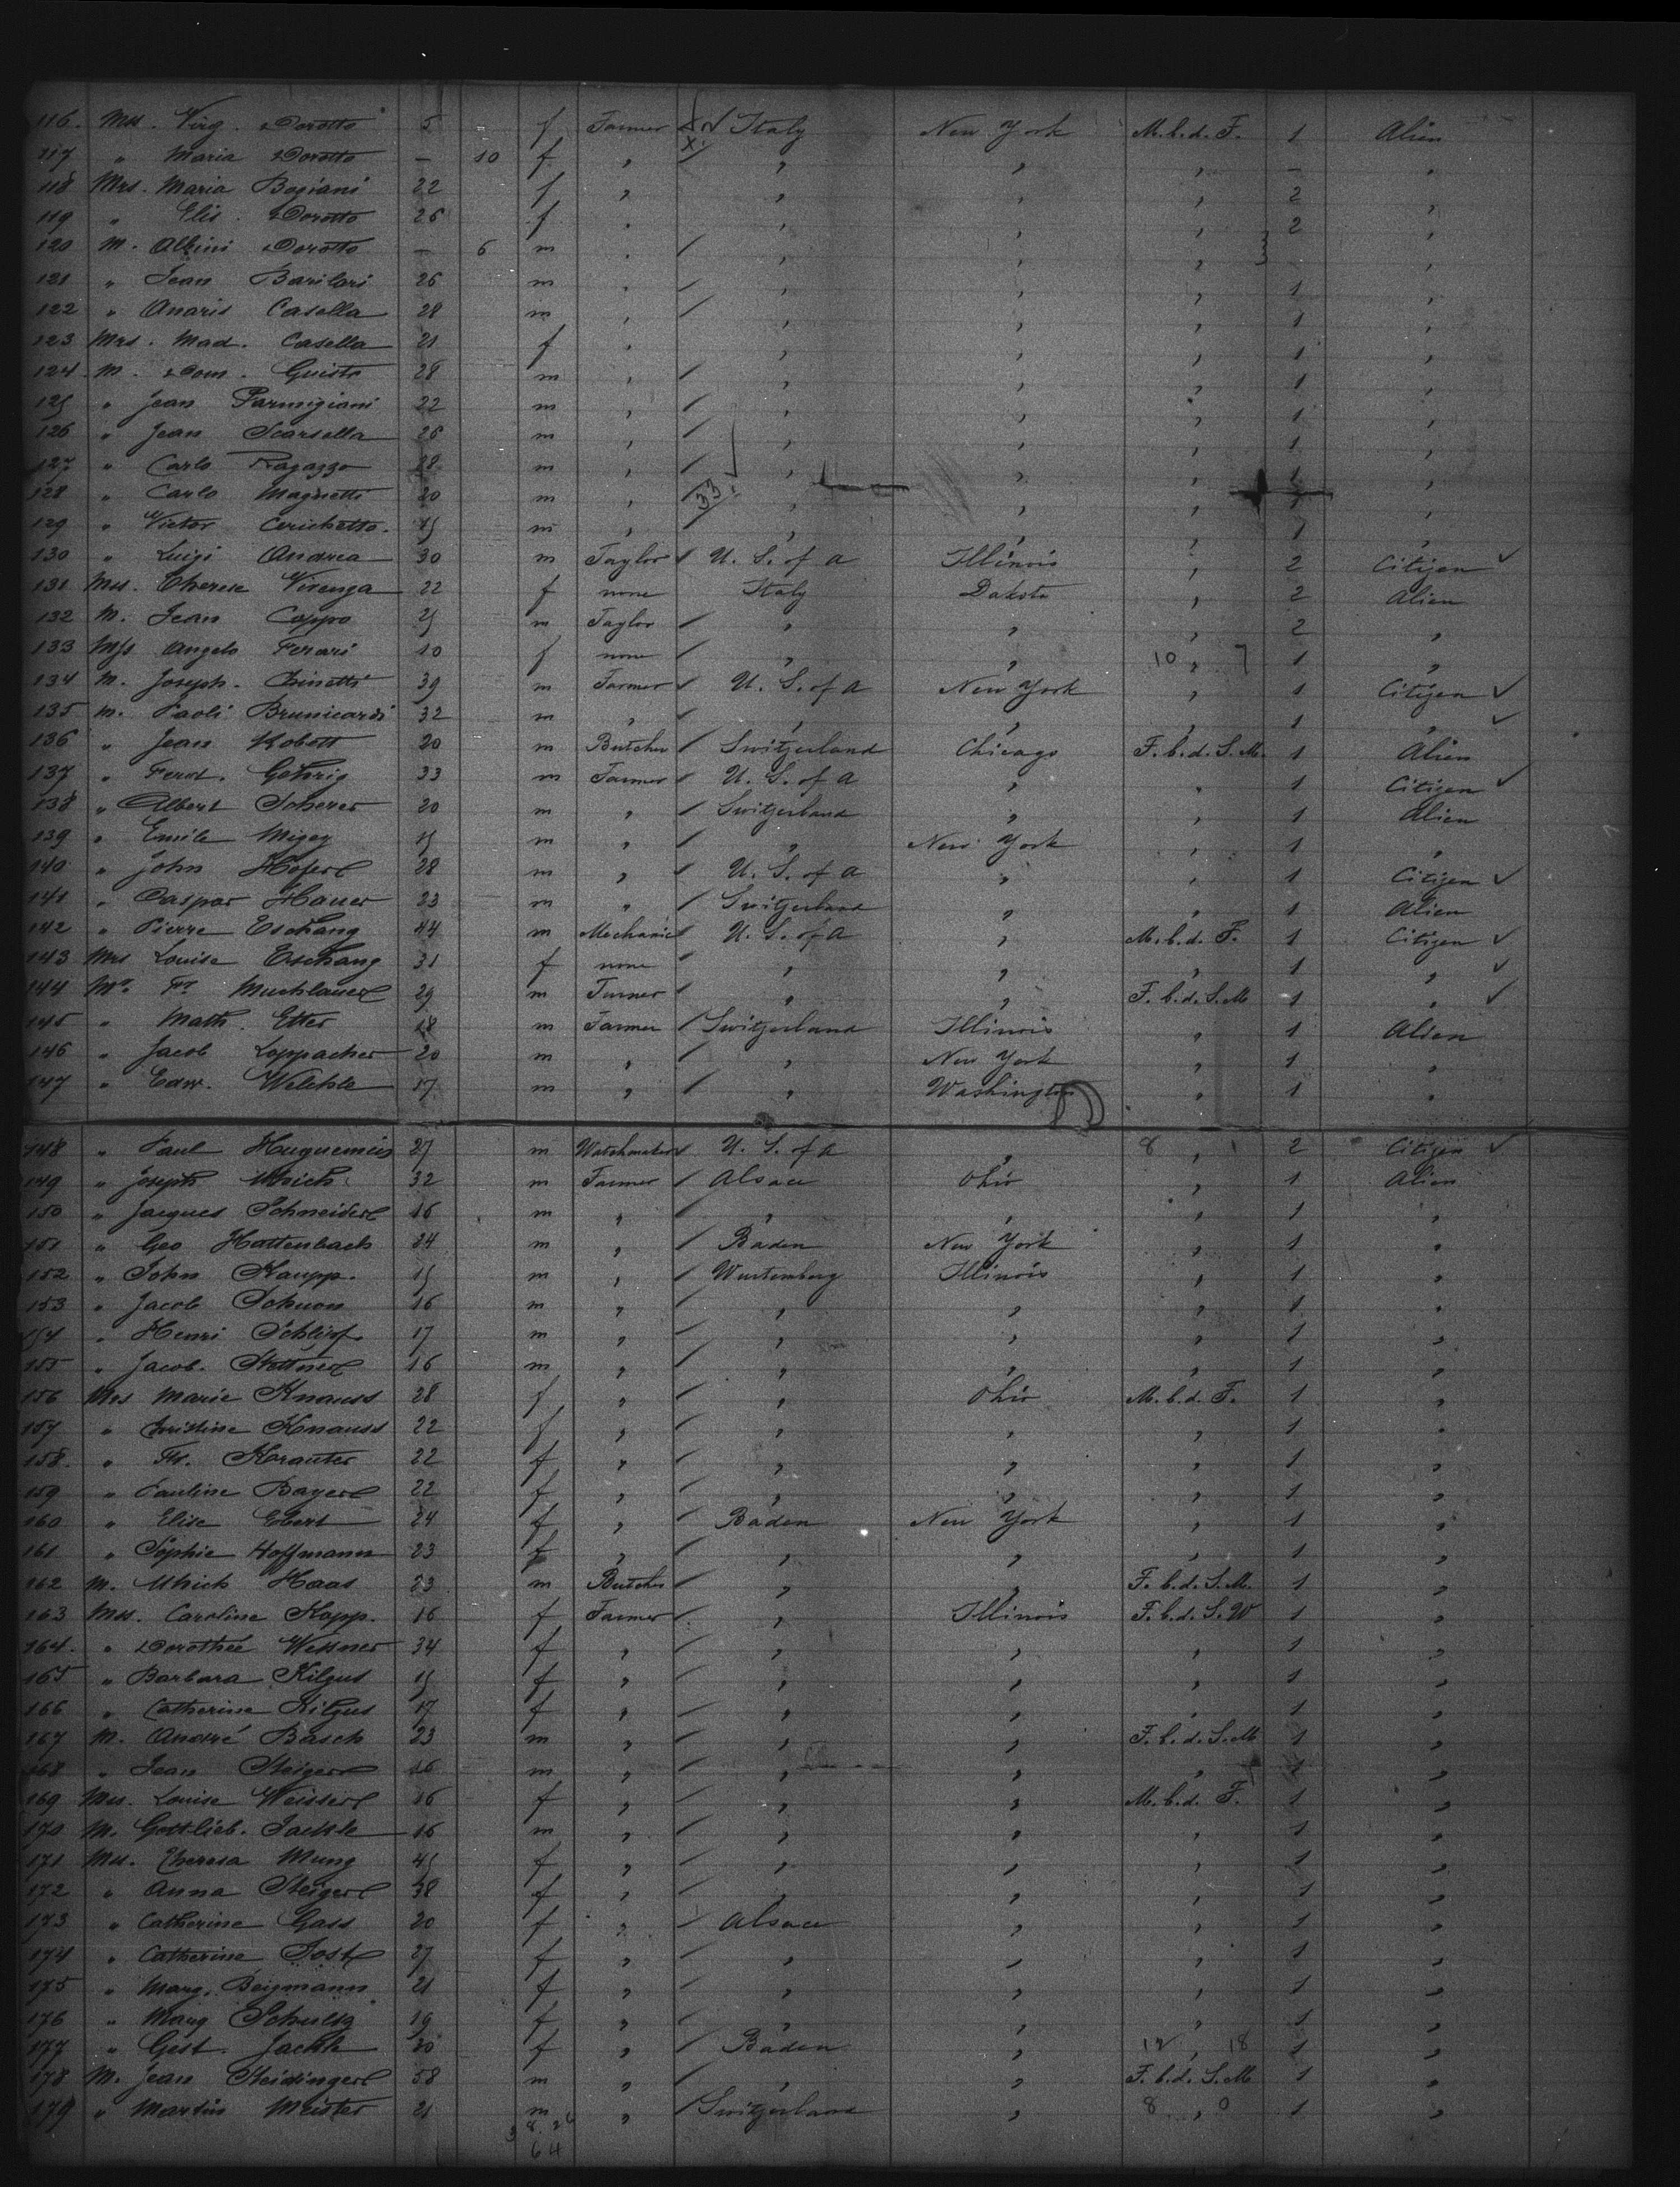 116. Mss. Virg. Dorotto 5 f Farmer Italy New York M.b.d.F. 1 Alien
117 " Maria Dorotto — 10 f " " " " — "
118 Mrs. Maria Bogiani 22 f " " " " 2 "
119 " Elis. Dorotto 26 f " " " " 2 "
120 M. Albini Dorotto — 6 m " " " " "
121 " Jean Barilari 26 m " " " " 1 "
122 " Anaris Casella 28 m " " " " 1 "
123 Mrs. Mad. Casella 21 f " " " " 1 "
124 M. Dom. Guisto 28 m " " " " 1 "
125 " Jean Parmigiani 22 m " " " " 1 "
126 " Jean Scarsella 26 m " " " " 1 "
127 " Carlo Ragazzo 28 m " " " " 1 "
128 " Carlo Magnetti 20 m " 33 " " " 1 "
129 " Victor Cerichetto. 15 m " " " " 1 "
130 " Luigi Andrea 30 m Taylor U. S. of a Illinois " 2 Citizen ✓
131 Mss. Therese Virenza 22 f none Italy Dakota " 2 Alien
132 M. Jean Coppo 25 m Taylor " " " 2 "
133 Miss Angelo Ferari 10 f none " " 10 " 7 1 "
134 M. Joseph. Chinetti 39 m Farmer U. S. of a New York " 1 Citizen ✓
135 M. Paoli Brunicardi 32 m " " " " 1 " ✓
136 " Jean Kobott 20 m Butcher Switzerland Chicago F.b.d.S.M. 1 Alien
137 " Ferd. Gehrig 33 m Farmer U. S. of a " " 1 Citizen ✓
138 " Albert Scherer 20 m " Switzerland " " 1 Alien
139 " Emile Mizey 15 m " " New York " 1 "
140 " John Hoferl 28 m " U. S. of a " " 1 Citizen ✓
141 " Caspar Hauer 23 m " Switzerland " " 1 Alien
142 " Pierre Eschang 44 m Mechanic U. S. of a " M.b.d.F. 1 Citizen ✓
143 Mrs Louise Eschang 31 f none " " " 1 " ✓
144 Mr. Fr. Muchlauer 29 m Turner " " F.b.d.S.M 1 " ✓
145 " Math. Etter 18 m Farmer Switzerland Illinois " 1 Alien
146 " Jacob Loppacher 20 m " " New York " 1 "
147 " Edw. Welchle 17 m " " Washington " 1 "
148 " Paul Huguenin 27 m Watchmaker U. S. of a " 8 " 1 2 Citizen ✓
149 " Joseph Ulrich 32 m Farmer Alsace Ohio " 1 Alien
150 " Jacques Schneider 16 m " " " " 1 "
151 " Geo Hattenbach 24 m " Baden New York " 1 "
152 " John Kaupp. 15 m " Wurtemberg Illinois " 1 "
153 " Jacob Schuon 16 m " " " " 1 "
154 " Henri Schlipf 17 m " " " " 1 "
155 " Jacob. Stettner 16 m " " " " 1 "
156 Mrs Marie Knauss 28 f " " Ohio M.b.d.F. 1 "
157 " Christine Knauss 22 f " " " " 1 "
158. " Fr. Krauter 22 f " " " " 1 "
159 " Pauline Bayer 22 f " " " " 1 "
160 " Elise Ebert 24 f " Baden New York " 1 "
161 " Sophie Hoffmann 23 f " " " " 1 "
162 M. Ulrich Haas 23 m Butcher " " F.b.d.S.M. 1 "
163 Mss. Caroline Kopp. 16 f Farmer " Illinois F.b.d.S.W 1 "
164. " Dorothée Wessner 34 f " " " " 1 "
165 " Barbara Kilgus 15 f " " " " 1 "
166 " Catherine Kilgus 17 f " " " " 1 "
167 M. André Basch 23 m " " " F.b.d.S.M 1 "
168 " Jean Steiger 16 m " " " " 1 "
169 Mss. Louise Weisser 16 f " " " M.b.d.F. 1 "
170 M. Gottlieb. Jackle 16 m " " " " 1 "
171 Mss. Theresa Mung 45 f " " " " 1 "
172 " Anna Steiger 38 f " " " " 1 "
173 " Catherine Gass 20 f " Alsace " " 1 "
174 " Catherine Jost 27 f " " " " 1 "
175 " Marg. Beigmann 21 f " " " " 1 "
176 " Marg Schultz 19 f " " " " 1 "
177 " Gest. Jackle 30 f " Baden " 12 " 18 1 "
178 M. Jean Steidinger 58 m " " " F.b.d.S.M 1 "
179 " Martin Meister 21 m " Switzerland " 8 " 0 1 "
64